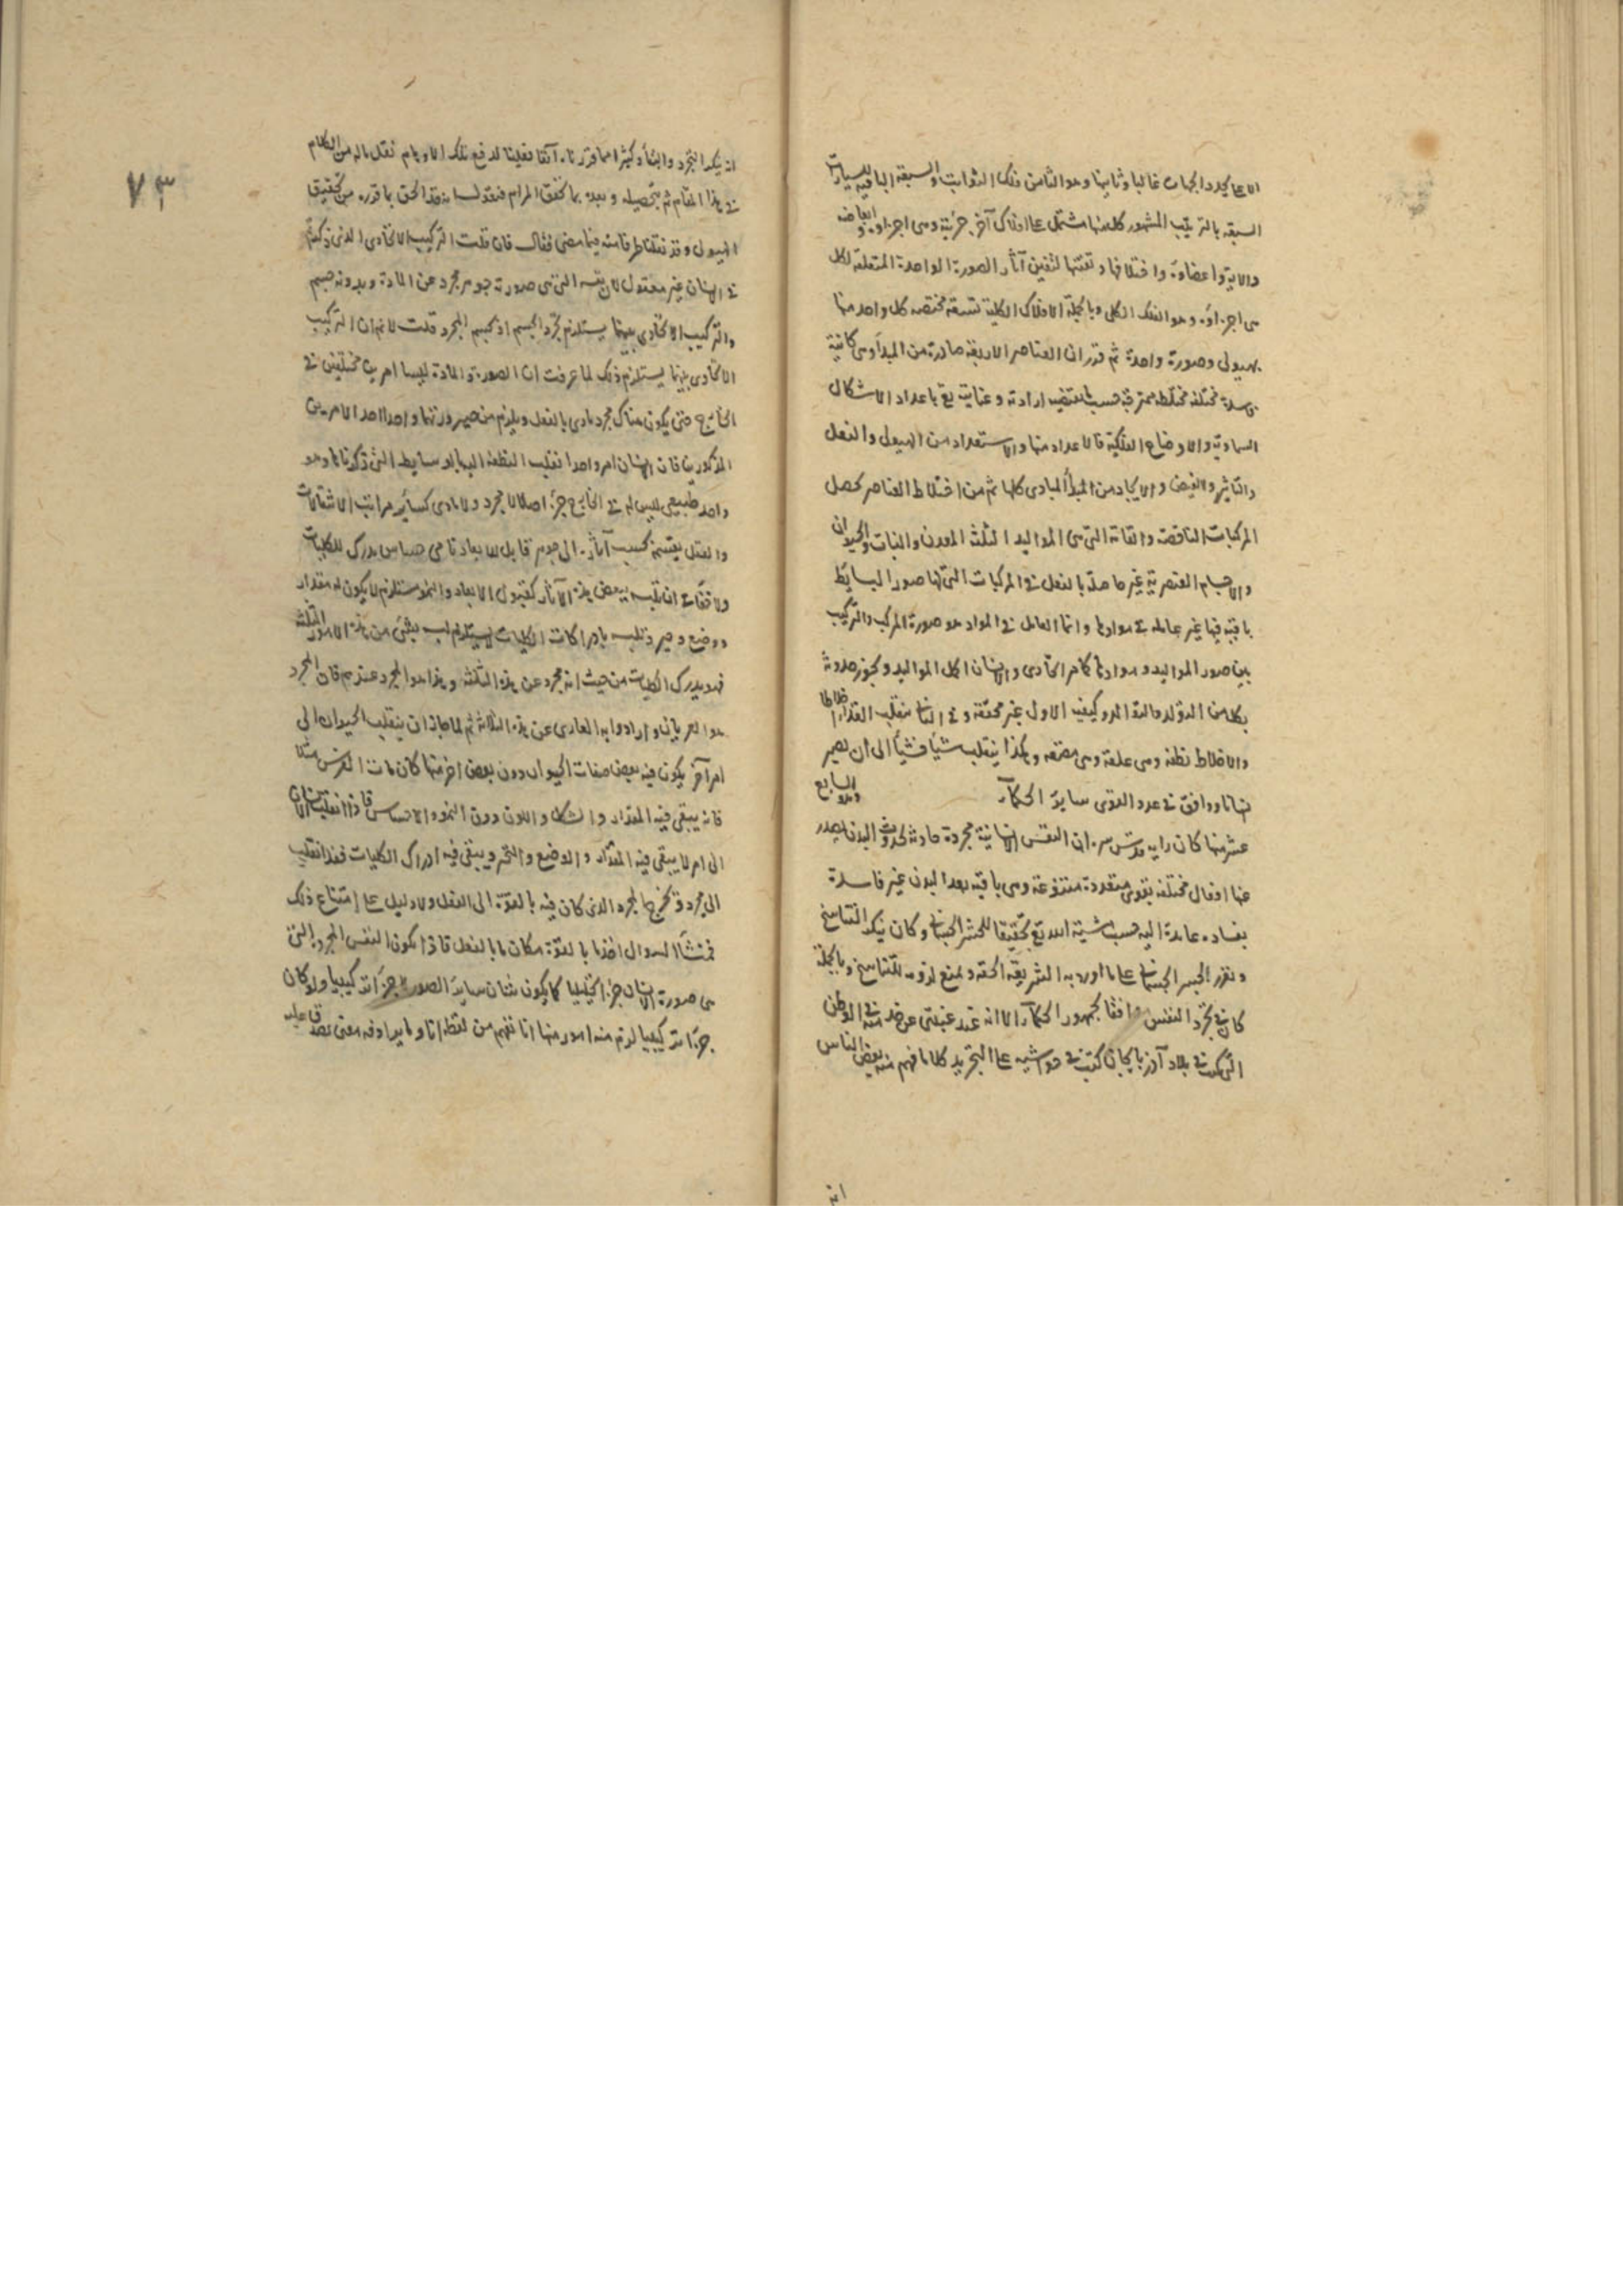 الاعلى محدد الجهات غالبا وثانيها وهو الثامن فلك الثوابت والسبعة الباقية للسيارات
السبعة بالترتيب المشهور كل منها مشتمل على افلاك آخر جزئية وهى اجزاوه وابعاضه
والاته واعضاوه واختلافها وتعينها لتفنن آثار الصورة الواحدة المتعلقة لكل
من اجزاؤه وهو الفلك الكلى وبالجملة الافلاك الكلية تسعة مختصة كل واحد منها
بهيولى وصورة واحدة ثم قرر ان العناصر الاربعة صادرة من المبدأ وهى كائنة
فاسدة مختلفة مختلطة ممتزجة حسب ما تقتضيه ارادته وعنايته تع باعداد الاشكال
السماوية والاوضاع الفلكية فالاعداد منها والاستعداد من الهيولى والفعل
والتاثير والفيض والايجاد من المبدأ المبادى كلها ثم من اختلاط العناصر تحصل
المركبات الناقصة والتامة التى هى المواليد الثلثة المعدن والنبات والحيوان
والاجسام العنصرية غير حاصلة بالفعل فى المركبات التى لها صور البسايط
باقية فيها غير عاملة فى موادها وانما العامل فى المواد هو صورة المركب والتركيب
بين صور المواليد وموادها كامر اتحادى والانسان اكمل المواليد ويجوز حدوثه
بكل من التولد والتوالد وكيفية الاول غير محققة وفى الثانى ينقلب الغذا اخلاطا
والاخلاط نطفة وهى علقة وهى مضغة وهكذا ينقلب شيأ فشيأ الى ان يصير
انسانا ووافق فى عدد القوى ساير الحكمآء والسابع
عشر منها كان رايه قدس سره ان النفس الانسانية مجردة حادثة بحدوث البدن يصدر
عنها افعال مختلفة بقوى متعددة متنوعة وهى باقية بعد البدن غير فاسدة
بفساده عايدة اليه حسب مشية الله تع تحقيقا للحشر الجسمانى وكان ينكر التناسخ
ويقرر الحشر الجسمانى على ما اورد به الشريعة الحقة ويمنع لزومه للتناسخ وبالجملة
كان فى تجرد النفس موافقا لجمهور الحكمآء الا انه عند غيبتى عن خدمته فى الوطن
الى كنت فى بلاد آذربايجان كتب فى حواشيه على التجريد كلاما فهم منه بعض الناس
انه
٧٣
انه ينكر التجرد والبقآء وكثيرا مما قررناه آنفا فعلينا لدفع تلك الاوهام نقل ماله من الكلام
فى هذا المقام ثم تحصيله وبعده بما تحقق المرام فنقول لسا نقد الحق ما قدره من تحقيق
الهيولى وقد نقلنا طرفا منه فيما مضى فقال فان قلت التركيب الاتحادى الذى ذكرته
فى الانسان غير معقول لان نفسه التى هى صورته جوهر مجرد عن المادة وبدونه جسم
والتركيب الاتحادى بينهما يستلزم تجرد الجسم او تجسم المجرد قلت لا نم ان التركيب
الاتحادى بينهما يستلزم ذلك لما عرفت ان الصورة والمادة ليسا امرين مختلفين فى
الخارج حتى يكون هناك مجرد ومادى بالفعل ويلزم من صيرورتهما واحدا احد الامرين
المذكورين فان الانسان امر واحد انقلب النطفة اليها بالوسايط التى ذكرناها وهو
واحد طبيعى ليس له فى الخارج جزء اصلا لا مجرد ولا مادى كساير مراتب الانتقالات
والعقل يقسمه بحسب آثاره الى جوهر قابل للابعاد نامى حساس مدرك للكليات
ولا خفاء فى ان تلبسه ببعض هذه الآثار كقبول الابعاد والنمو مستلزم لا يكون له مقدار
ووضع وحيز وتلبسه بادراكات الكليات لا يستلزم تلبسه بشئ من هذه الامور الثلثة
فهو يدرك الكليات من حيث انه مجرد عن هذه الثلثة وهذا هو المجرد عندهم فان المجرد
هو العريان وارادوا به العارى عن هذه الثلاثة ثم لما جاز ان ينقلب الحيوان الى
امر آخر يكون فيه بعض صفات الحيوان دون بعض اخر منها كان مات الفرس مثلا
فانه يبقى فيه المقدار والشكل واللون دون النمو والاحساس فاذا انقلب الانسان
الى امر لا يبقى فيه المقدار والوضع والتحيز ويبقى فيه ادراك الكليات فقد انقلب
الى مجرد وتخرج المجرد الذى كان فيه بالقوة الى الفعل ولا دليل على امتناع ذلك
فمنشأ السوال اخذ ما بالقوة مكان ما بالفعل فاذا تكون النفس المجردة التى
هى صورة الانسان جزءا تحليليا كما يكون شان ساير الصور لا جزءا تركيبيا ولو كان
جزءا تركيبيا لزم منه امور منها انا نفهم من لفظ انا وما يرادفه معنى يصدق عليه